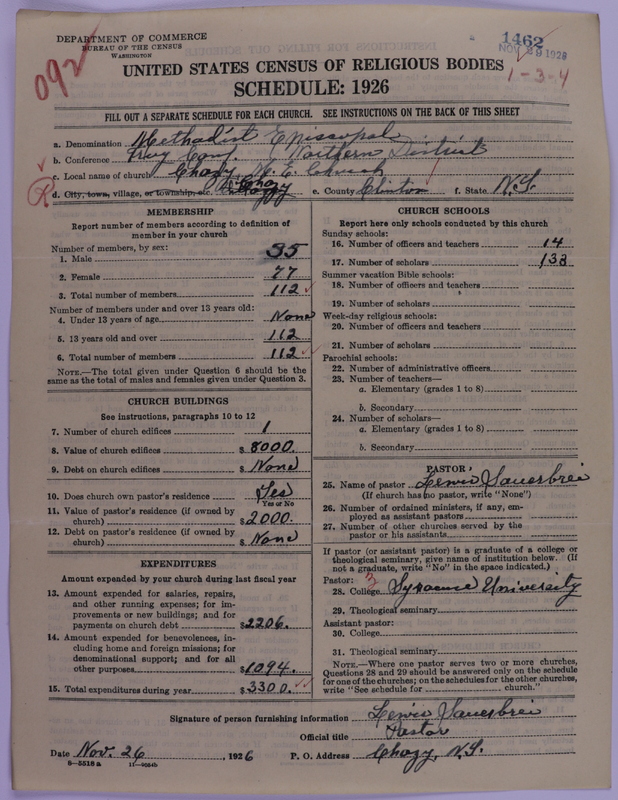 DEPARTMENT OF COMMERCE
BUREAU OF THE CENSUS
WASHINGTON
1462
NOV 29 1926
092
1-3-4
UNITED STATES CENSUS OF RELIGIOUS BODIES
SCHEDULE: 1926
FILL OUT A SEPARATE SCHEDULE FOR EACH CHURCH. SEE INSTRUCTIONS ON THE BACK OF THIS SHEET
a. Denomination Methodist Episcopal
b. Conference Troy Conf. Northern District
c. Local name of church Chazy M. E. Church
R d. City, town, village, or township, etc. Chazy e. County Clinton f. State N.Y.
MEMBERSHIP
Report number of members according to definition of member in your church
Number of members, by sex:
1. Male 35
2. Female 77
3. Total number of members 112
Number of members under and over 13 years old:
4. Under 13 years of age None
5. 13 years old and over 112
6. Total number of members 112
NOTE.—The total given under Question 6 should be the same as the total of males and females given under Question 3.
CHURCH BUILDINGS
See instructions, paragraphs 10 to 12
7. Number of church edifices 1
8. Value of church edifices $ 8000.
9. Debt on church edifices $ None
10. Does church own pastor's residence Yes
Yes or No
11. Value of pastor's residence (if owned by church) $ 2000.
12. Debt on pastor's residence (if owned by church) $ None
EXPENDITURES
Amount expended by your church during last fiscal year
13. Amount expended for salaries, repairs, and other running expenses; for improvements or new buildings; and for payments on church debt $2206.
14. Amount expended for benevolences, including home and foreign missions; for denominational support; and for all other purposes $1094.
15. Total expenditures during year $3300.
CHURCH SCHOOLS
Report here only schools conducted by this church
Sunday schools:
16. Number of officers and teachers 14
17. Number of scholars 133
Summer vacation Bible schools:
18. Number of officers and teachers
19. Number of scholars
Week-day religious schools:
20. Number of officers and teachers
21. Number of scholars
Parochial schools:
22. Number of administrative officers
23. Number of teachers—
a. Elementary (grades 1 to 8)
b. Secondary
24. Number of scholars—
a. Elementary (grades 1 to 8)
b. Secondary
PASTOR
25. Name of pastor Lewis Sauerbrei
(If church has no pastor, write "None")
26. Number of ordained ministers, if any, employed as assistant pastors
27. Number of other churches served by the pastor or his assistants
If pastor (or assistant pastor) is a graduate of a college or theological seminary, give name of institution below. (If not a graduate, write "No" in the space indicated.)
Pastor: 3
28. College Syracuse University
29. Theological seminary
Assistant pastor:
30. College
31. Theological seminary
NOTE.—Where one pastor serves two or more churches, Questions 28 and 29 should be answered only on the schedule for one of the churches; on the schedules for the other churches, write "See schedule for church."
Signature of person furnishing information Lewis Sauerbrei
Official title Pastor
Date Nov. 26, 1926 P. O. Address Chazy, N.Y.
8-5518 a